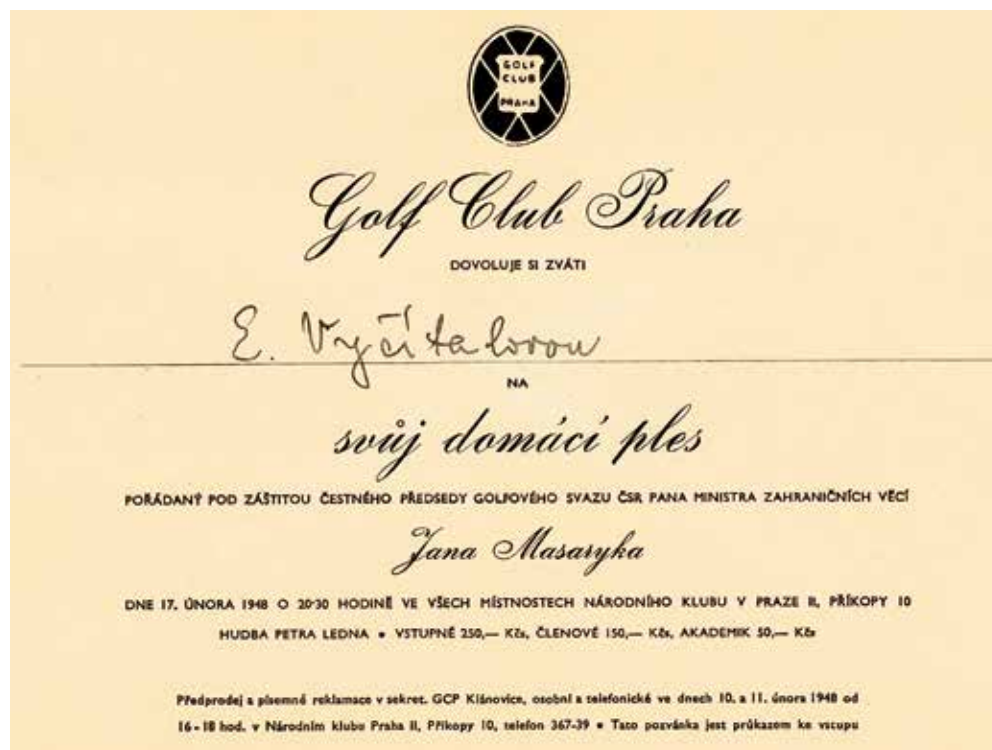 GOLF
CLUB
PRAHA
Golf Club Praha
DOVOLUJE SI ZVÁTI
E. Vyčítalovou
NA
svůj domácí ples
POŘÁDANÝ POD ZÁŠTITOU ČESTNÉHO PŘEDSEDY GOLFOVÉHO SVAZU ČSR PANA MINISTRA ZAHRANIČNÍCH VĚCÍ
Jana Masaryka
DNE 17. ÚNORA 1948 O 20·30 HODINĚ VE VŠECH MÍSTNOSTECH NÁRODNÍHO KLUBU V PRAZE II, PŘÍKOPY 10
HUDBA PETRA LEDNA • VSTUPNÉ 250,— Kčs, ČLENOVÉ 150,— Kčs, AKADEMIK 50,— Kčs
Předprodej a písemné reklamace v sekret. GCP Klánovice, osobní a telefonické ve dnech 10. a 11. února 1948 od
16 - 18 hod. v Národním klubu Praha II, Příkopy 10, telefon 367-39 • Tato pozvánka jest průkazem ke vstupu